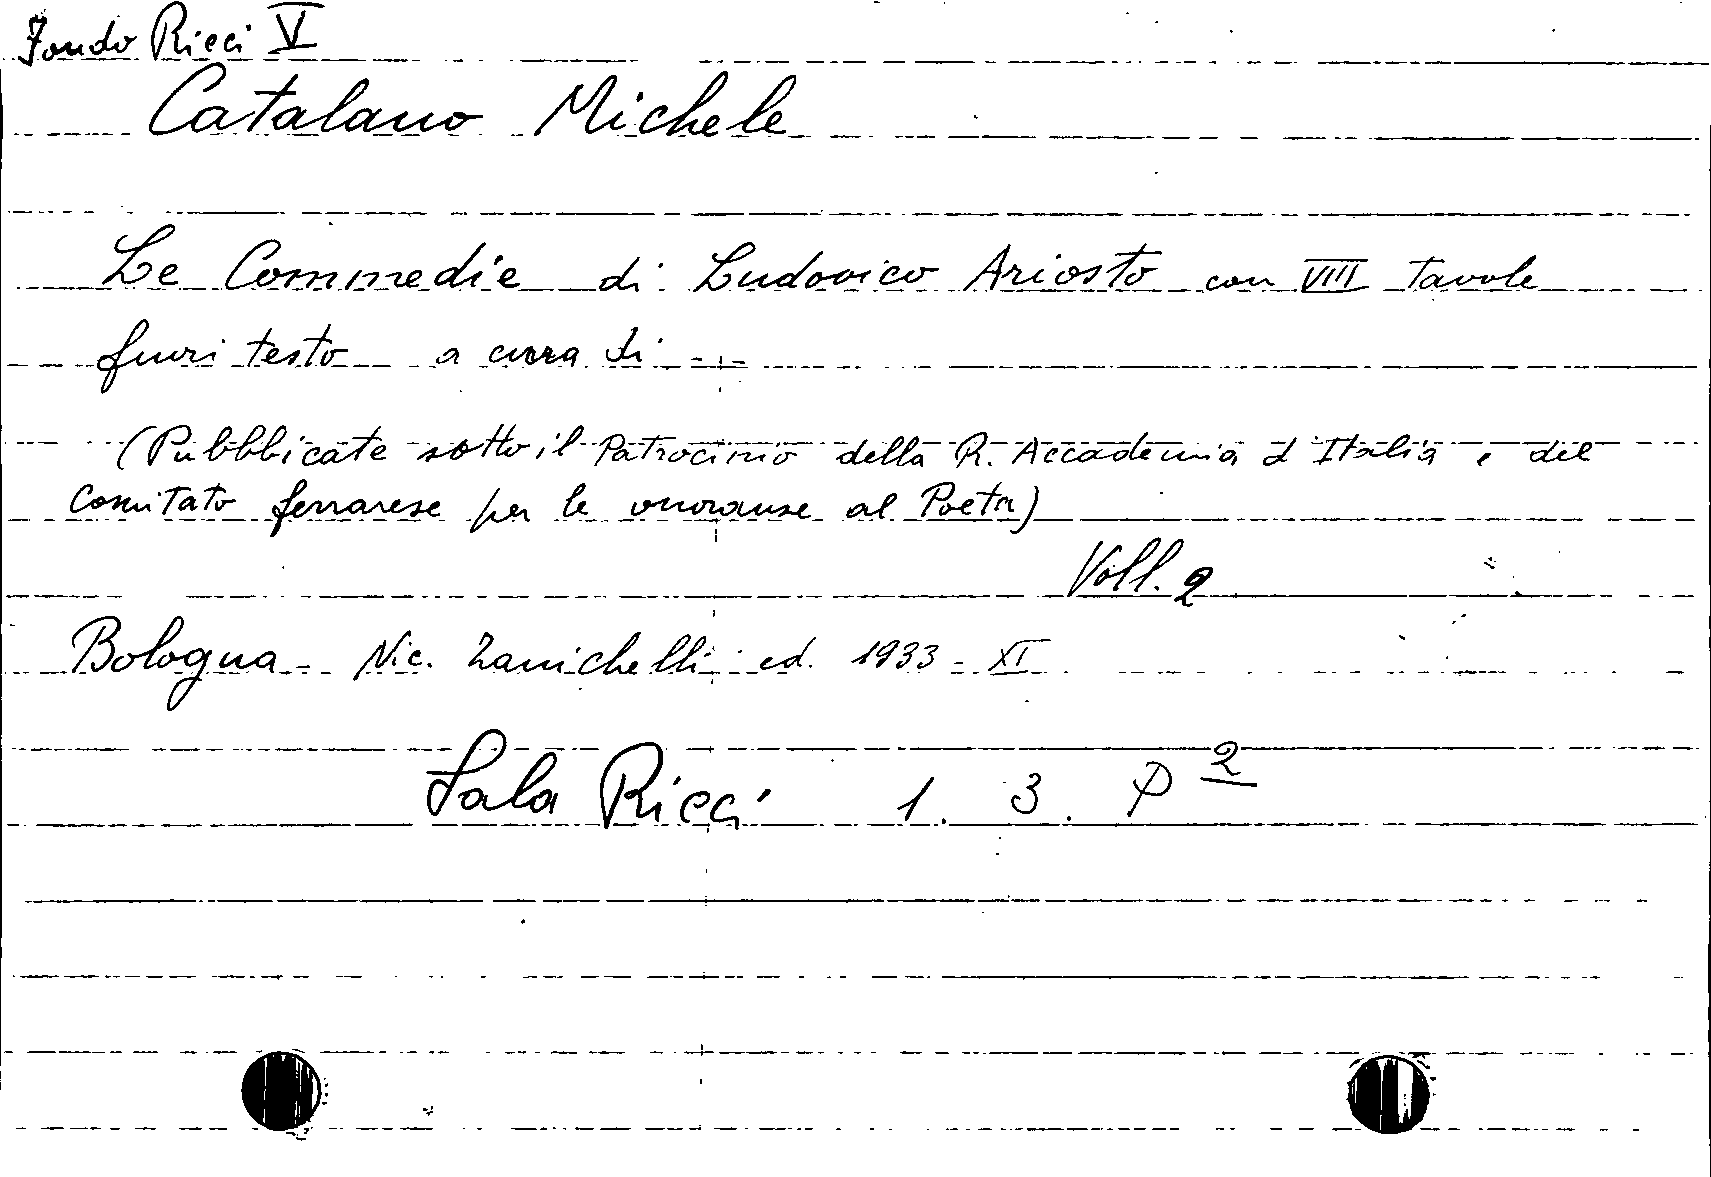 Fondo Ricci V
Catalano Michele
Le Commedie di Ludovico Ariosto con VIII tavole
fuori testo a cura di -.-
(Pubblicate sotto il Patrocinio della R. Accademia d'Italia e del
Comitato ferrarese per le onoranze al Poeta)
Voll. 2
Bologna - Nic. Zanichelli ed. 1933 - XI
Sala Ricci 1. 3. P 2